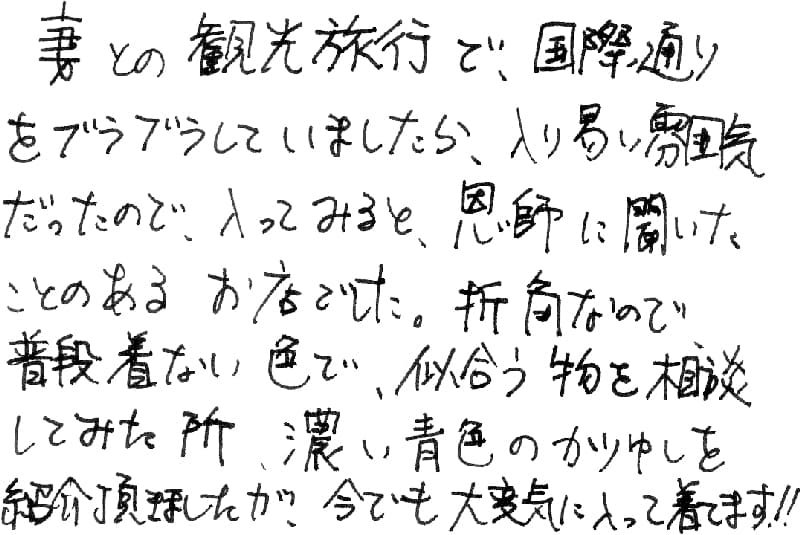 妻との観光旅行で、国際通り
をブラブラしていましたら、入り易い雰囲気
だったので、入ってみると、恩師に聞いた
ことのあるお店でした。折角なので
普段着ない色で、似合う物を相談
してみた所、濃い青色のかりゆしを
紹介頂きましたが、今でも大変気に入って着てます!!